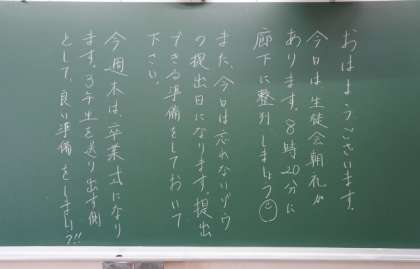 おはようございます。
今日は生徒会朝礼が
あります。8時20分に
廊下に整列しましょう
また、今日は忘れないゾウ
の提出日になります。提出
できる準備をしておいて
下さい。
今週末は、卒業式になり
ます。3年生を送り出す側
として、良い準備をしましょう!!